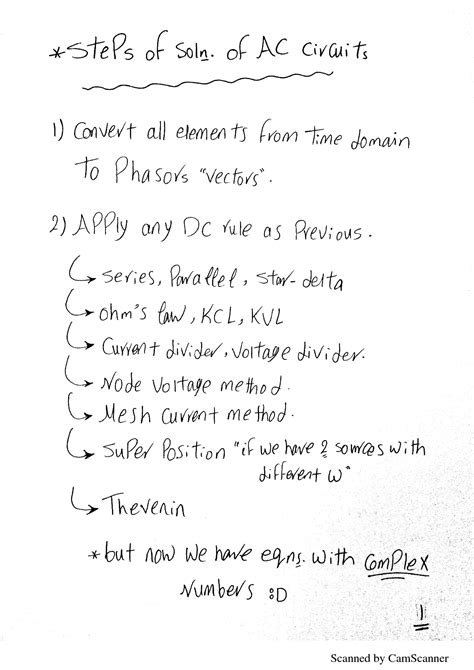 *Steps of Soln. of AC Circuits
1) Convert all elements from Time domain
To Phasors "vectors".
2) APPly any DC rule as Previous.
series, Parallel, star-delta
ohm's law, KCL, KVL
Current divider, Voltage divider.
Node Voltage method.
Mesh Current method.
SuPer Position "if we have 2 sources with
different ω"
Thevenin
*but now we have eqns. with ComPlex
Numbers :D
1
Scanned by CamScanner